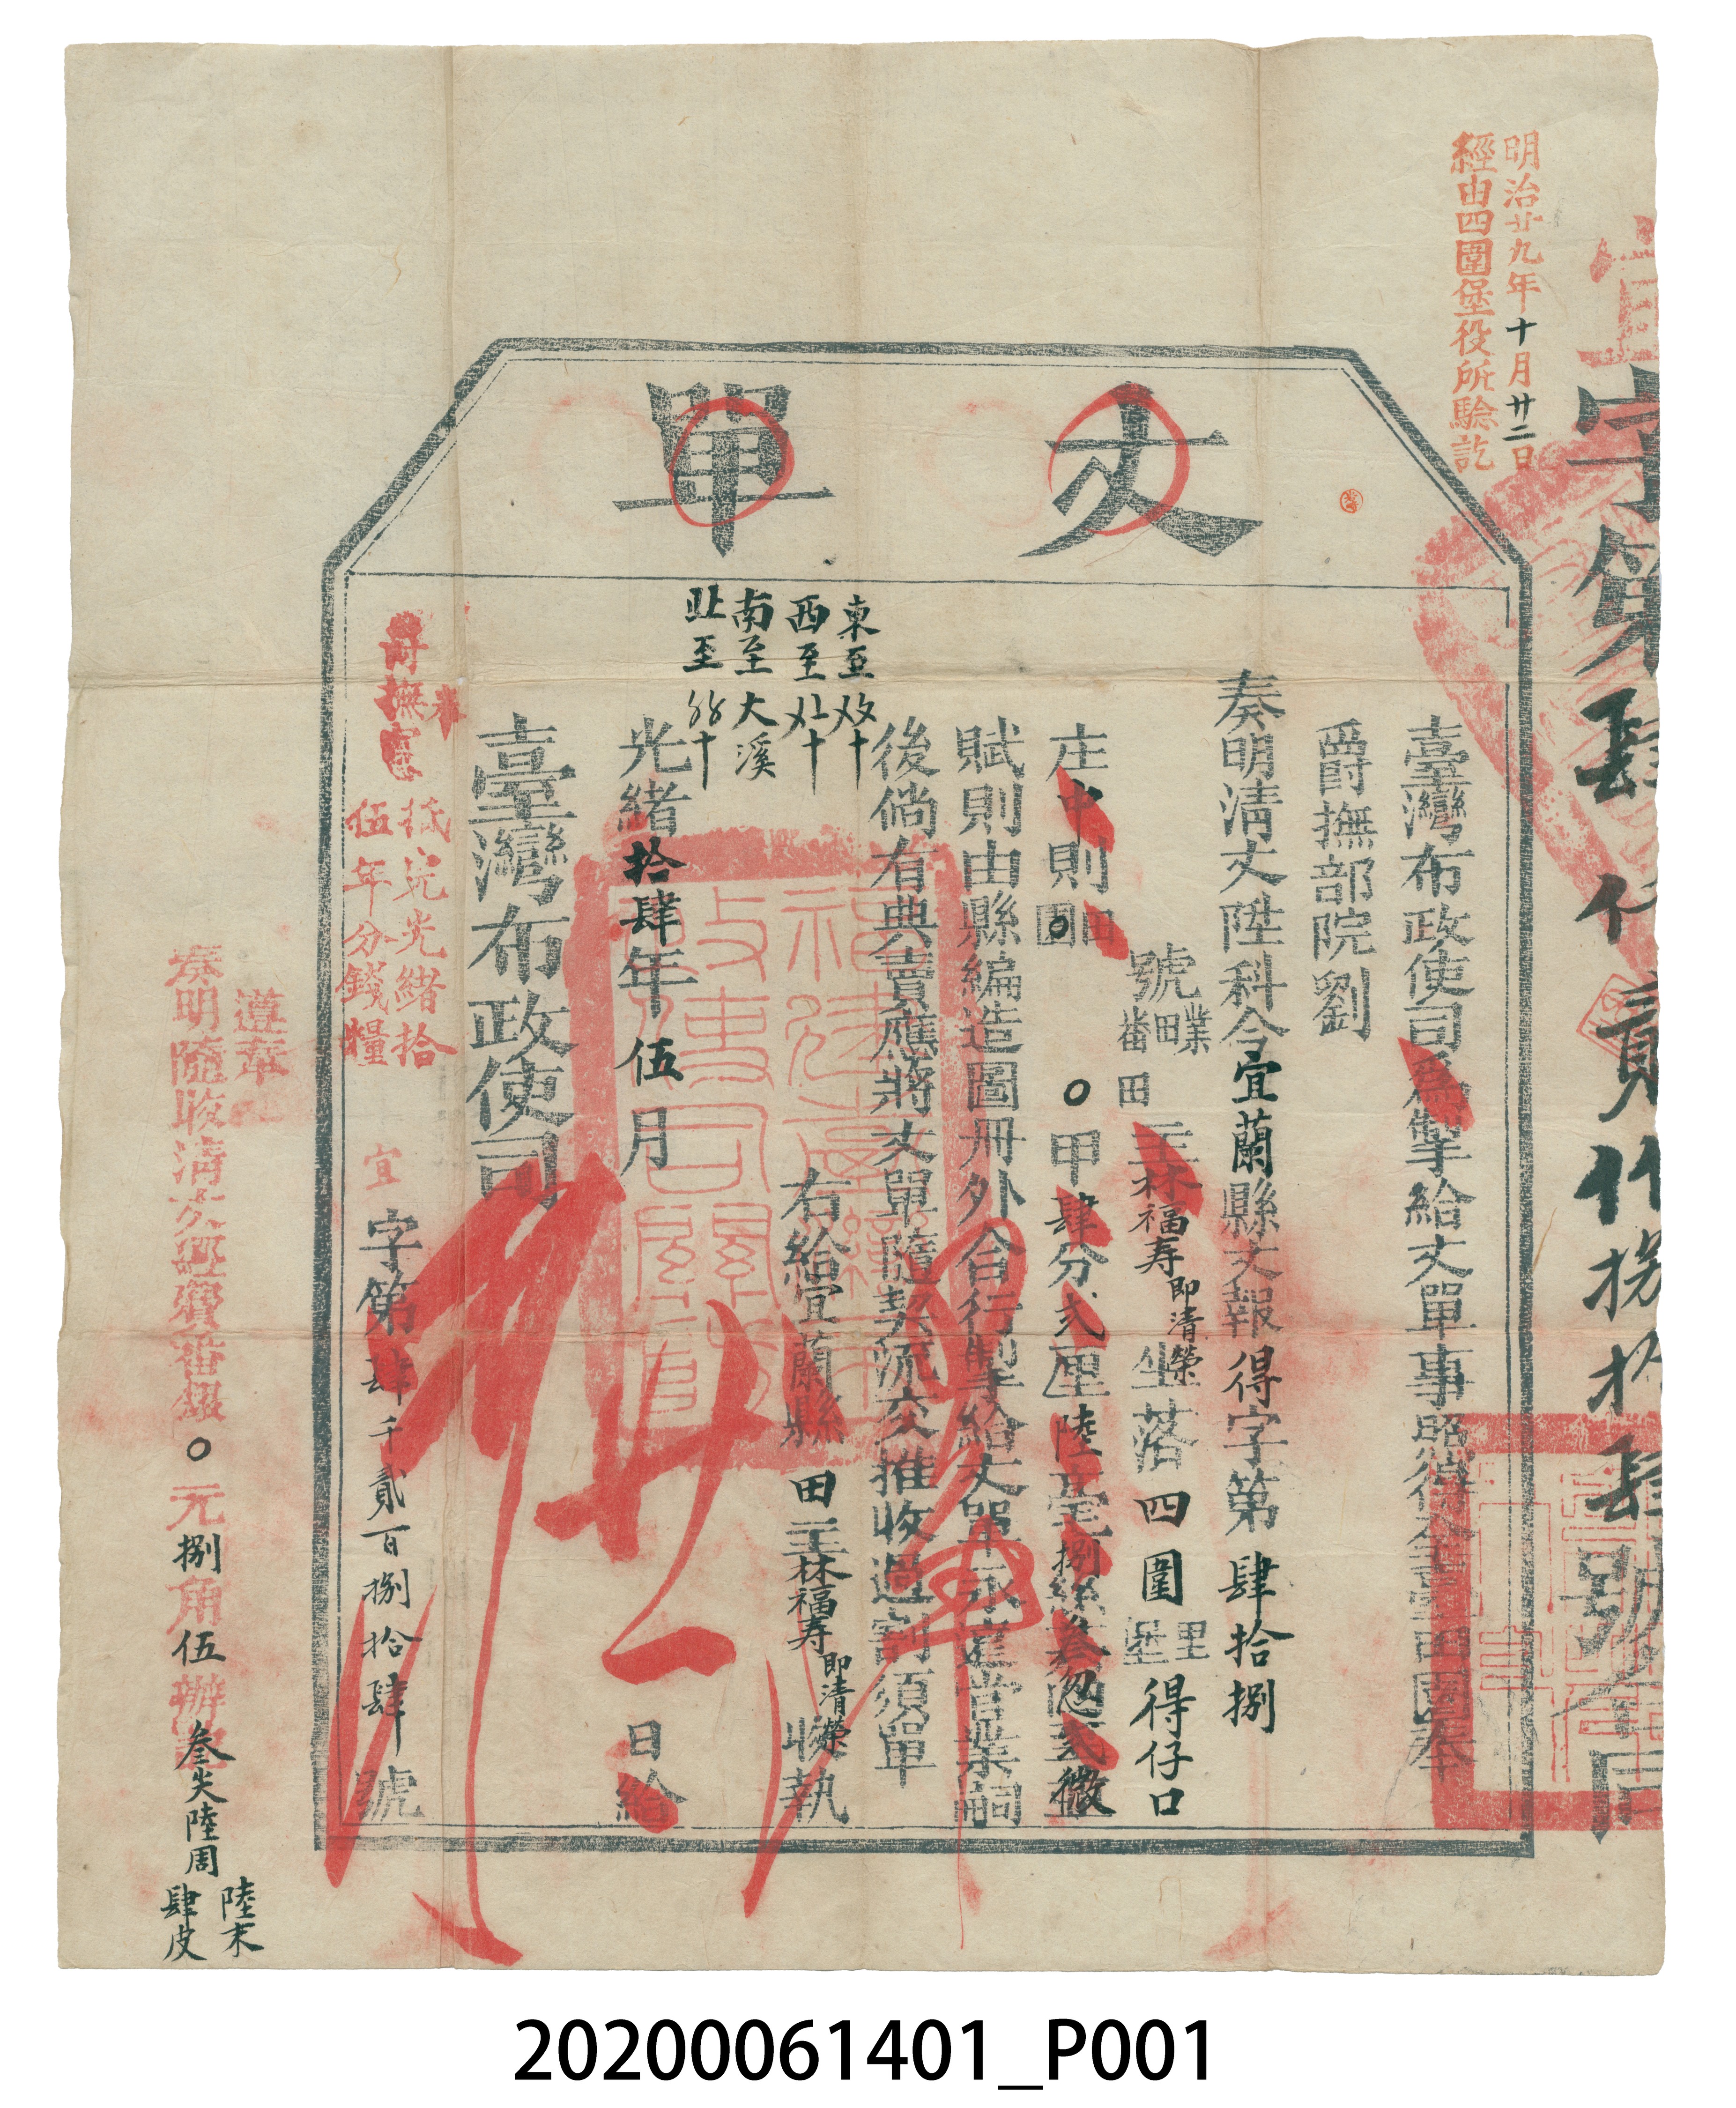 明治廿九年十月廿二日
經由四圍堡役所驗訖
宜字第肆仟貳佰捌拾肆號
丈單
臺灣布政使司為掣給丈單事照得全臺田園奉
爵撫部院劉
奏明清丈陞科今宜蘭縣丈報得字第肆拾捌
號業田番田主林福寿即清榮坐落四圍里堡得仔口
庄中則田園0甲肆分弍厘陸毫捌絲叁忽弍微
賦則由縣編造圖冊外合行掣給丈單永遠當業嗣
後倘有典賣應將丈單隨契流交推收過割須單
東至
西至
南至大溪
北至
右給宜蘭縣田主林福寿即清榮收執
光緒拾肆年伍月廿一日給
臺灣布政使司
奉
爵撫憲
抵完光緒拾
伍年分錢糧
宜字第肆千貳百捌拾肆號
遵章
奏明隨收清丈經費番銀0元捌角伍辦叁尖陸周
陸末
肆皮
20200061401_P001